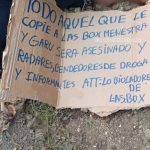 TODO AQUEL QUE LE
COPIE A LAS BOX MENESTRA
Y GARU SERA ASESINADO Y
RADARES, BENDEDORES DE DROGA
Y INFORMANTES ATT: LO BIOLADORES
DE
LAS BOX